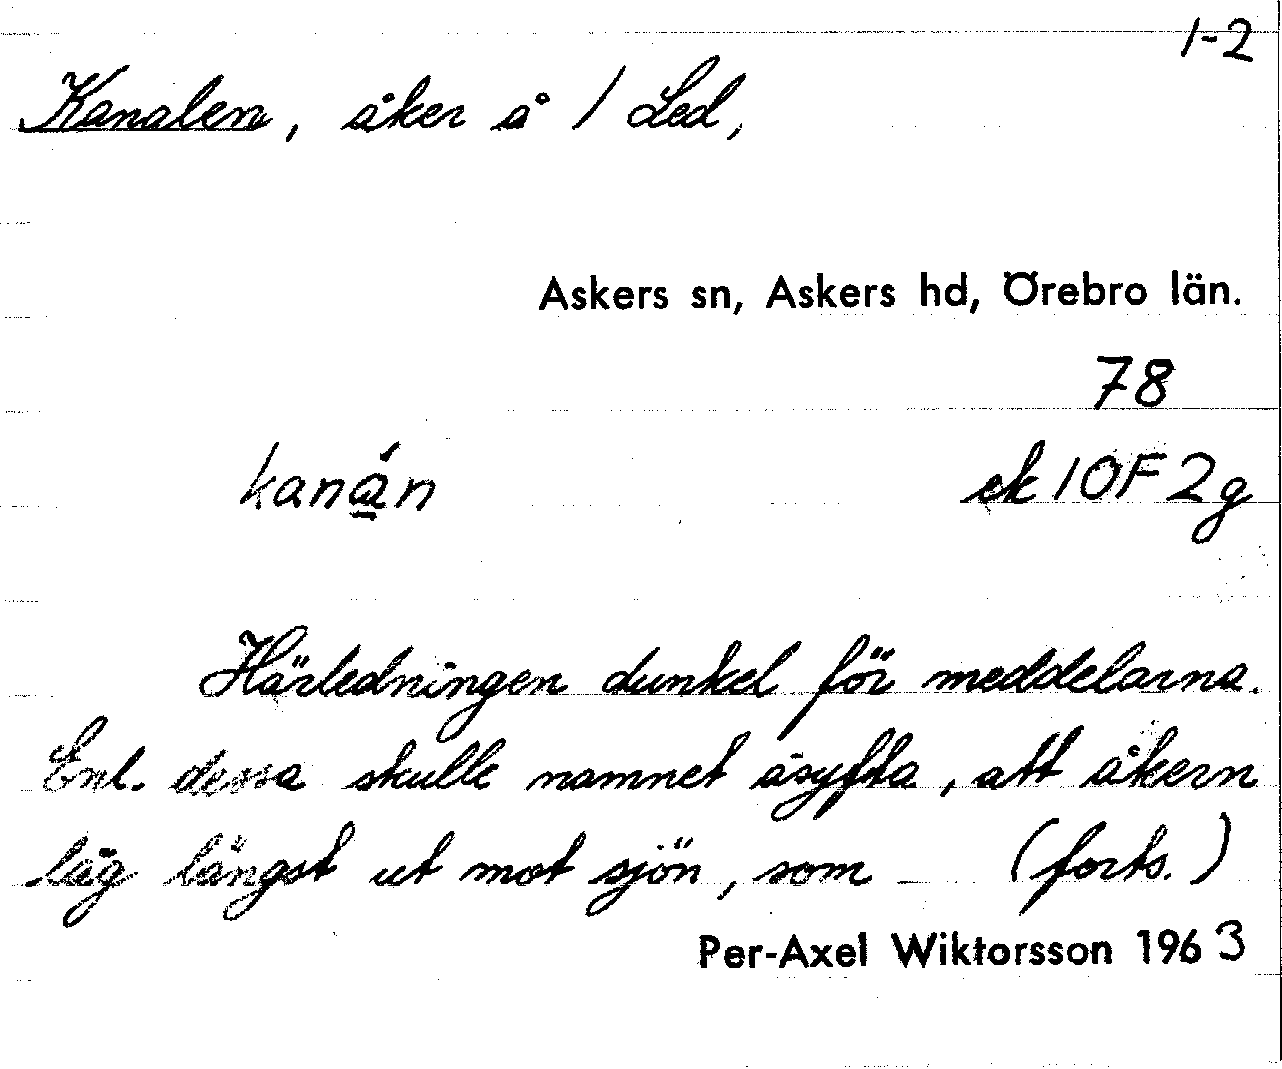 1-2
Kanalen, åker å 1 Led,
Askers sn, Askers hd, Örebro län.
78
kanán
ek 10F 2g
Härledningen dunkel för meddelarna.
Enl. dessa skulle namnet åsyfta, att åkern
låg längst ut mot sjön, som — (forts.)
Per-Axel Wiktorsson 1963